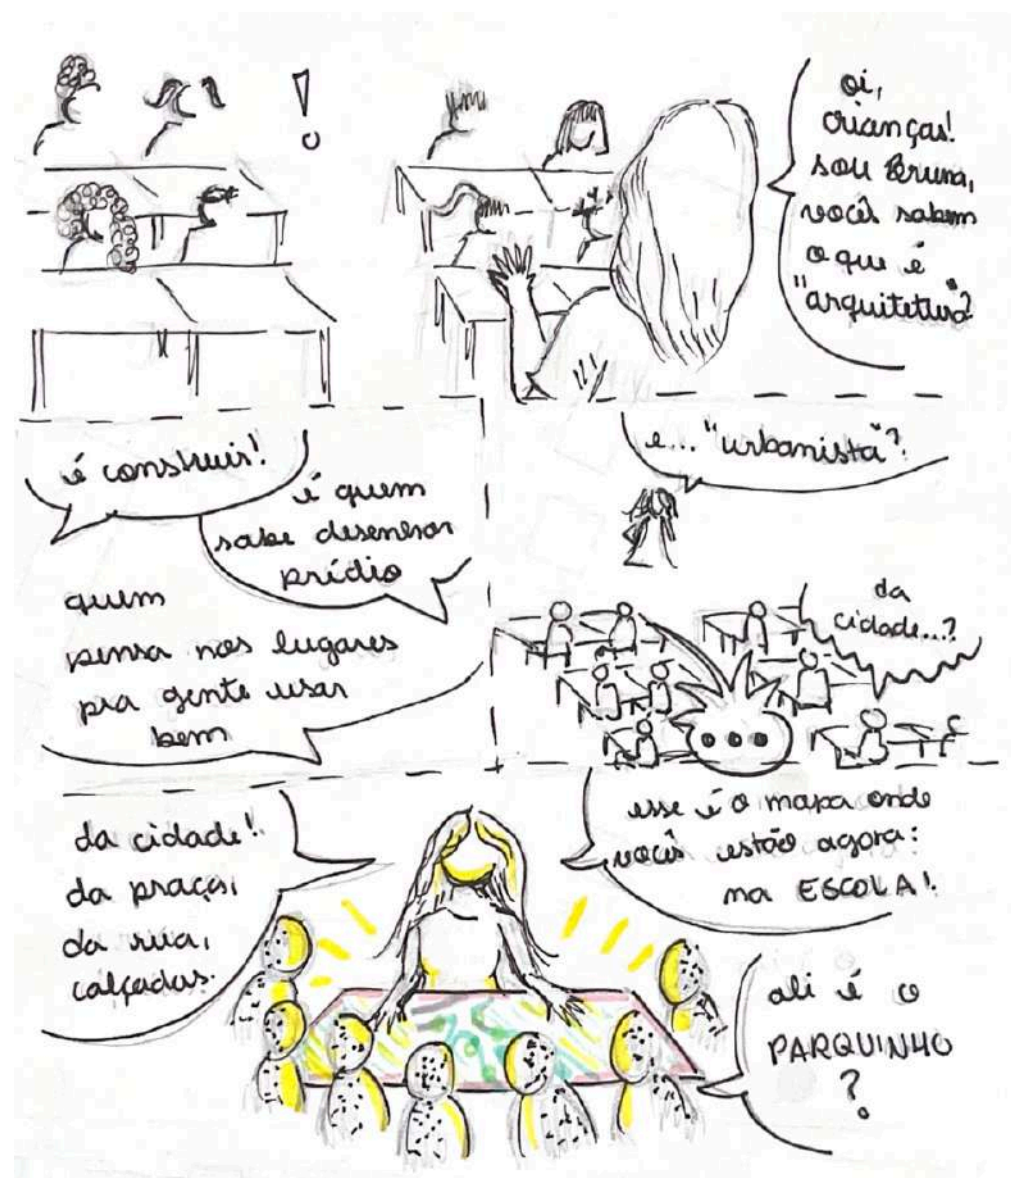 !
oi,
crianças!
sou Bruna,
vocês sabem
o que é
"arquitetura"?
é construir!
é quem
sabe desenhar
prédio
quem
pensa nos lugares
pra gente usar
bem
e... "urbanista"?
da
cidade...?
...
da cidade!
da praça,
da rua,
calçadas.
esse é o mapa onde
vocês estão agora:
na ESCOLA!
ali é o
PARQUINHO
?